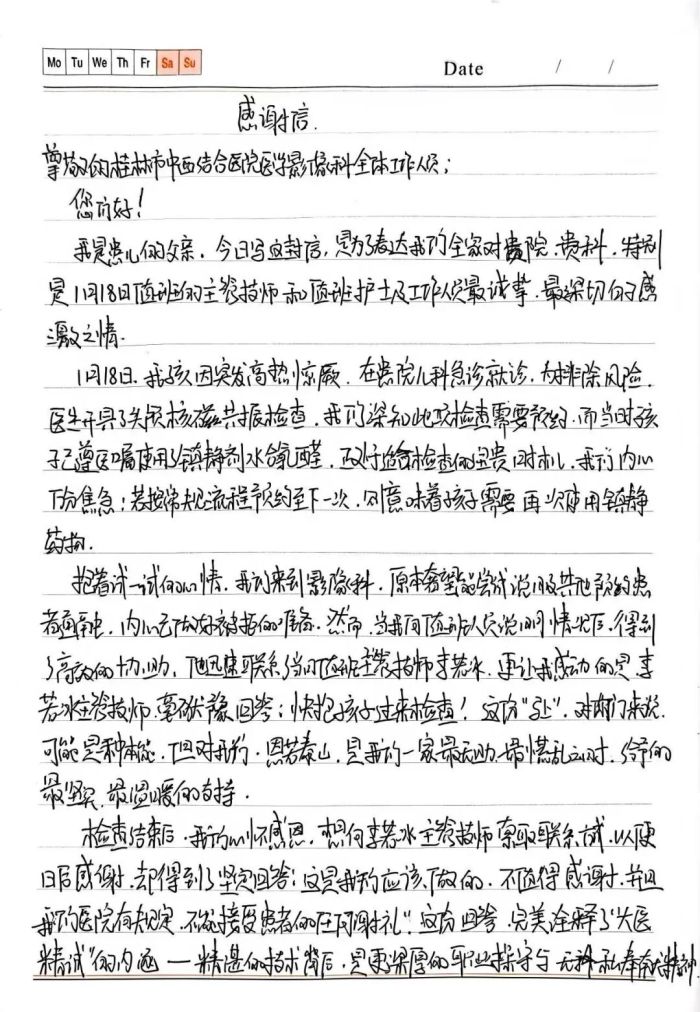 Mo Tu We Th Fr Sa Su
Date / /
感谢信.
尊敬的桂林市中西结合医院医学影像科全体工作人员:
您们好!
我是患儿的父亲. 今日写这封信, 是为了表达我们全家对贵院、贵科, 特别
是1月18日值班的主管技师和值班护士及工作人员最诚挚、最深切的感
激之情.
1月18日, 我孩因突发高热惊厥, 在贵院儿科急诊就诊, 为排除风险,
医生开具了头颅核磁共振检查, 我们深知此项检查需要预约, 而当时孩
子已遵医嘱使用了镇静剂水合氯醛, 正处于适合检查的宝贵时机, 我们内心
十分焦急: 若按常规流程预约至下一次, 则意味着孩子需要再次使用镇静
药物.
抱着试一试的心情, 我们来到影像科, 原本希望能尝试说服其他预约患
者通融, 内心已做好被拒的准备. 然而, 当我向值班人员说明情况后, 得到
了高效的协助, 他迅速联系当时值班主管技师李若水, 更让我感动的是, 李
若水主管技师毫不犹豫回答: 快抱孩子过来检查! 这份"马上", 对你们来说,
可能是种本能, 但对我们, 恩若泰山, 是我们一家最无助、最慌乱之时, 给予的
最坚实、最温暖的支持.
检查结束后, 我们心怀感恩, 想向李若水主管技师索取联系方式, 以便
日后感谢, 却得到了坚定回答: 这是我们应该做的, 不值得感谢, 并且
我们医院有规定, 不能接受患者的任何谢礼". 这份回答, 完美诠释了"大医
精诚"的内涵 — 精湛的技术背后, 是更深厚的职业操守与无私奉献精神